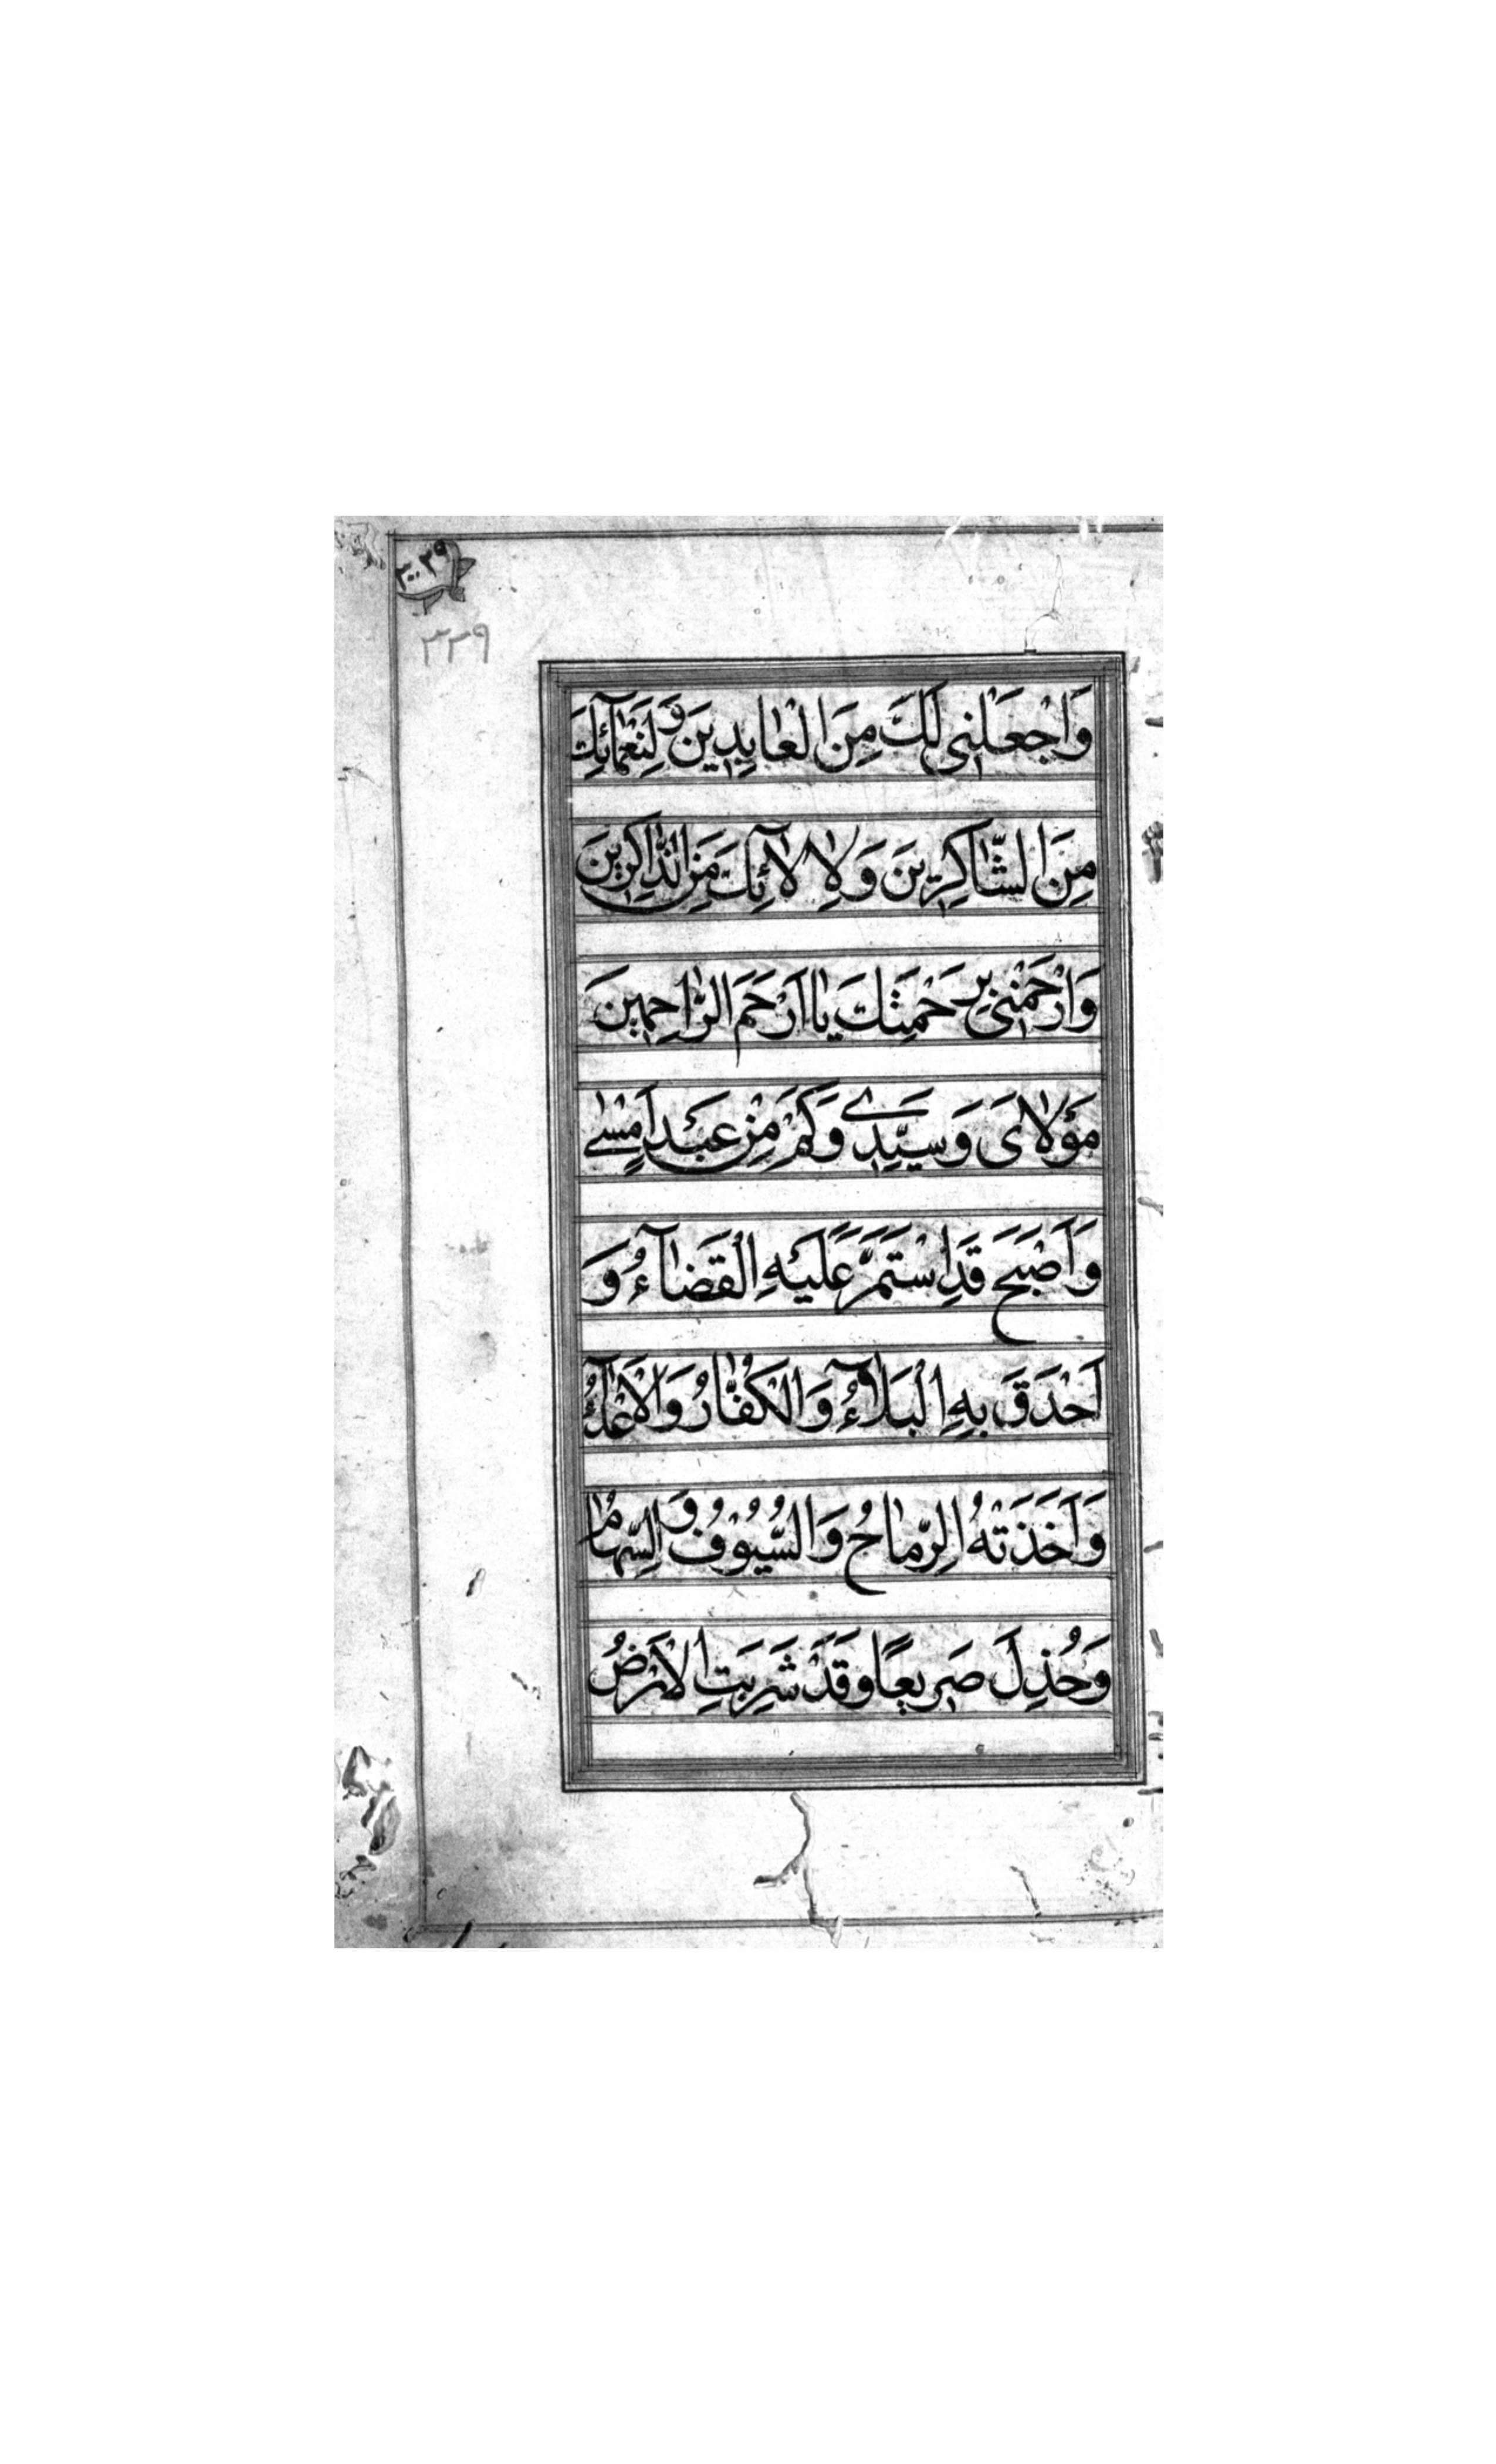 ٣٠٠٣٩
٣٣٩
وَاجْعَلْنِي لَكَ مِنَ الْعَابِدِينَ وَلِنَعْمَآئِكَ
مِنَ الشَّاكِرِينَ وَلِاٰلَآئِكَ مِنَ الذَّاكِرِينَ
وَارْحَمْنِي بِرَحْمَتِكَ يَا اَرْحَمَ الرَّاحِمِينَ
مَوْلَايَ وَسَيِّدِي وَكَمْ مِنْ عَبْدٍ اَمْسٰى
وَاَصْبَحَ قَدِ اسْتَمَرَّ عَلَيْهِ الْقَضَآءُ وَ
اَحْدَقَ بِهِ الْبَلَآءُ وَالْكُفَّارُ وَالْاَعْدَآءُ
وَاَخَذَتْهُ الرِّمَاحُ وَالسُّيُوفُ وَالسِّهَامُ
وَحُذِلَ صَرِيعًا وَقَدْ شَرِبَتِ الْاَرْضُ